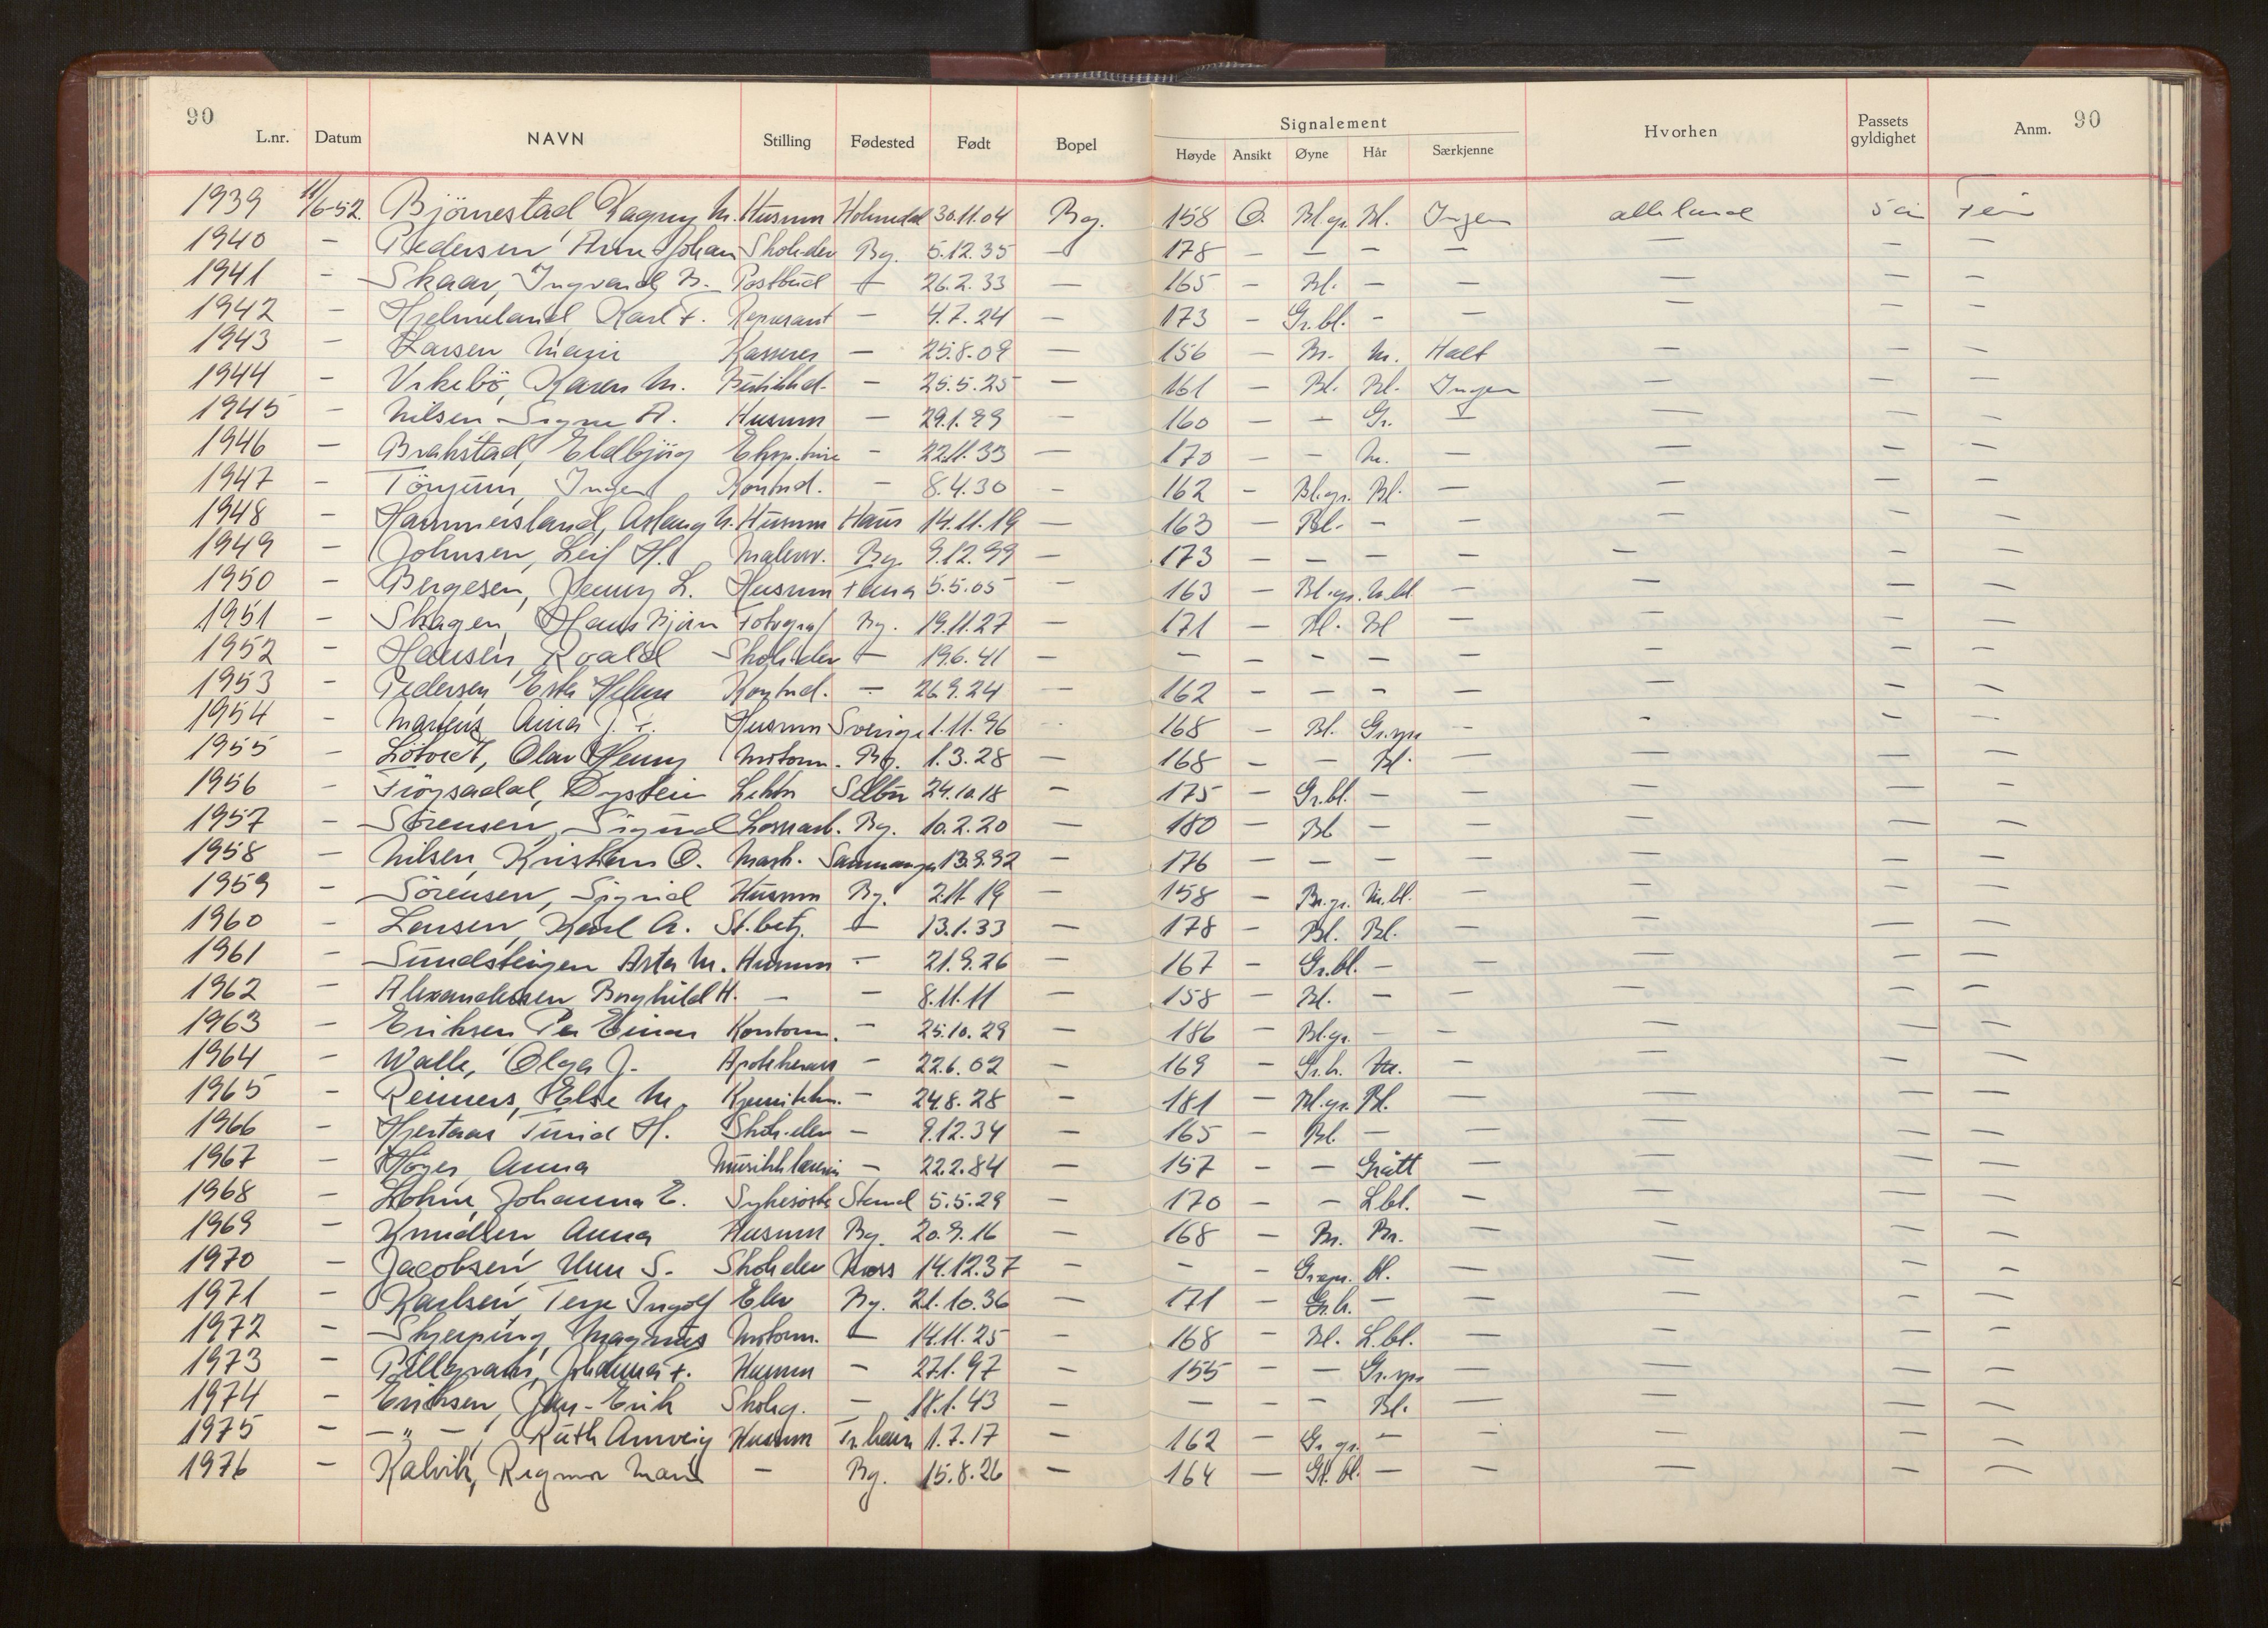 90 90
L.nr. Datum NAVN Stilling Fødested Født Bopel Signalement Hvorhen Passets gyldighet Anm.
Høyde Ansikt Øyne Hår Særkjenne
1939 11/6-52. Björnestad Dagny M. Husmm Holmedal 30.11.04 Bg. 158 O. Bl.gr. Bl. Ingen alle land 5 år
1940 — Pedersen, Arne Johan Skoleelev Bg. 5.12.35 — 178 — — — — — — —
1941 — Skaar, Ingvard B. Postbud — 26.2.33 — 165 — Bl. — — — — —
1942 — Hjelmeland, Karl F. Represant — 4.7.24 — 173 — Gr.bl. — — — — —
1943 — Larsen Marie Kasserer — 25.8.09 — 156 — Br. M. Halt — — —
1944 — Vikebö, Karen M. Butikkd. — 25.5.25 — 161 — Bl. Bl. Ingen — — —
1945 — Nilsen Signe A. Husmm — 29.1.99 — 160 — — Gr. — — — —
1946 — Brakstad, Eldbjörg — 22.11.33 — 170 — — M. — — — —
1947 — Tönjum, Inger Kontord. — 8.4.30 — 162 — Bl.gr. Bl. — — — —
1948 — Hammersland, Aslaug M. Husmm Haus 14.11.19 — 163 — Bl. — — — — —
1949 — Johnsen, Leif H. Malerm. Bg. 9.12.99 — 173 — — — — — — —
1950 — Bergesen, Jenny L. Husmm Fana 5.5.05 — 163 — Bl.gr. M.bl. — — — —
1951 — Skagen, Hans Bjørn Fotograf Bg. 19.11.27 — 171 — Bl. Bl — — — —
1952 — Hansen, Roald Skoleelev — 19.6.41 — — — — — — — — —
1953 — Pedersen Ester Helene Kontord. — 26.9.24 — 162 — — — — — — —
1954 — Martens Anna J. F. Husmm Sverige 1.11.96 — 168 — Bl. — — — —
1955 — Løtvedt, Olav Henry Motorm. Bg. 1.3.28 — 168 — — Bl. — — — —
1956 — Öystein Lektor Selbu 24.10.18 — 175 — Gr.bl. — — — — —
1957 — Sörensen, Sigurd Losarb. Bg. 10.2.20 — 180 — Bl — — — — —
1958 — Nilsen, Kristian O. Mask. Samnanger 13.9.92 — 176 — — — — — — —
1959 — Sörensen, Sigrid Husmm Bg. 2.11.19 — 158 — Br.gr. M.bl. — — — —
1960 — Larsen, Karl A. St.betj. — 13.1.33 — 178 — Bl. Bl. — — — —
1961 — Sundsteigen Asta M. Husmm — 21.9.26 — 167 — Gr.bl. — — — — —
1962 — Alexandersen Borghild H. — — 8.11.11 — 158 — Bl. — — — — —
1963 — Eriksen Per Einar Kontorm. — 25.10.29 — 186 — Bl.gr. — — — — —
1964 — Walle, Olga J. — 22.6.02 — 169 — Gr.h. — — — —
1965 — Reimers, Else M. — 24.8.28 — 181 — Bl.gr. Bl. — — — —
1966 — Hjertaas Turid H. Skoleelev — 9.12.34 — 165 — Bl. — — — — —
1967 — Höyer, Anna Musikklærerin — 22.2.84 — 157 — — Grått — — — —
1968 — Lohne, Johanna E. Sykesøster Stend 5.5.29 — 170 — — L.bl. — — — —
1969 — Knudsen Anna Husmm Bg. 20.9.16 — 168 — Br. Br. — — — —
1970 — Jacobsen, Unn S. Skoleelev Moss 14.12.37 — — — Bl. — — — —
1971 — Karlsen, Terje Ingolf Elev Bg. 21.10.36 — 171 — — — — — —
1972 — Skjerping, Magnus Motorm. — 14.11.25 — 168 — Bl. L.bl. — — — —
1973 — Johanna F. Husmm — 27.1.97 — 155 — — — — — —
1974 — Eriksen, Jan-Erik Skoleg. — 18.1.43 — — — — Bl. — — — —
1975 — — „ — , Ruth Annveig Husmm Tr.heim 1.7.17 — 162 — Gr. gr. — — — — —
1976 — Kalvik, Rigmor Marie — Bg. 15.8.26 — 164 — Gr.bl. — — — — —